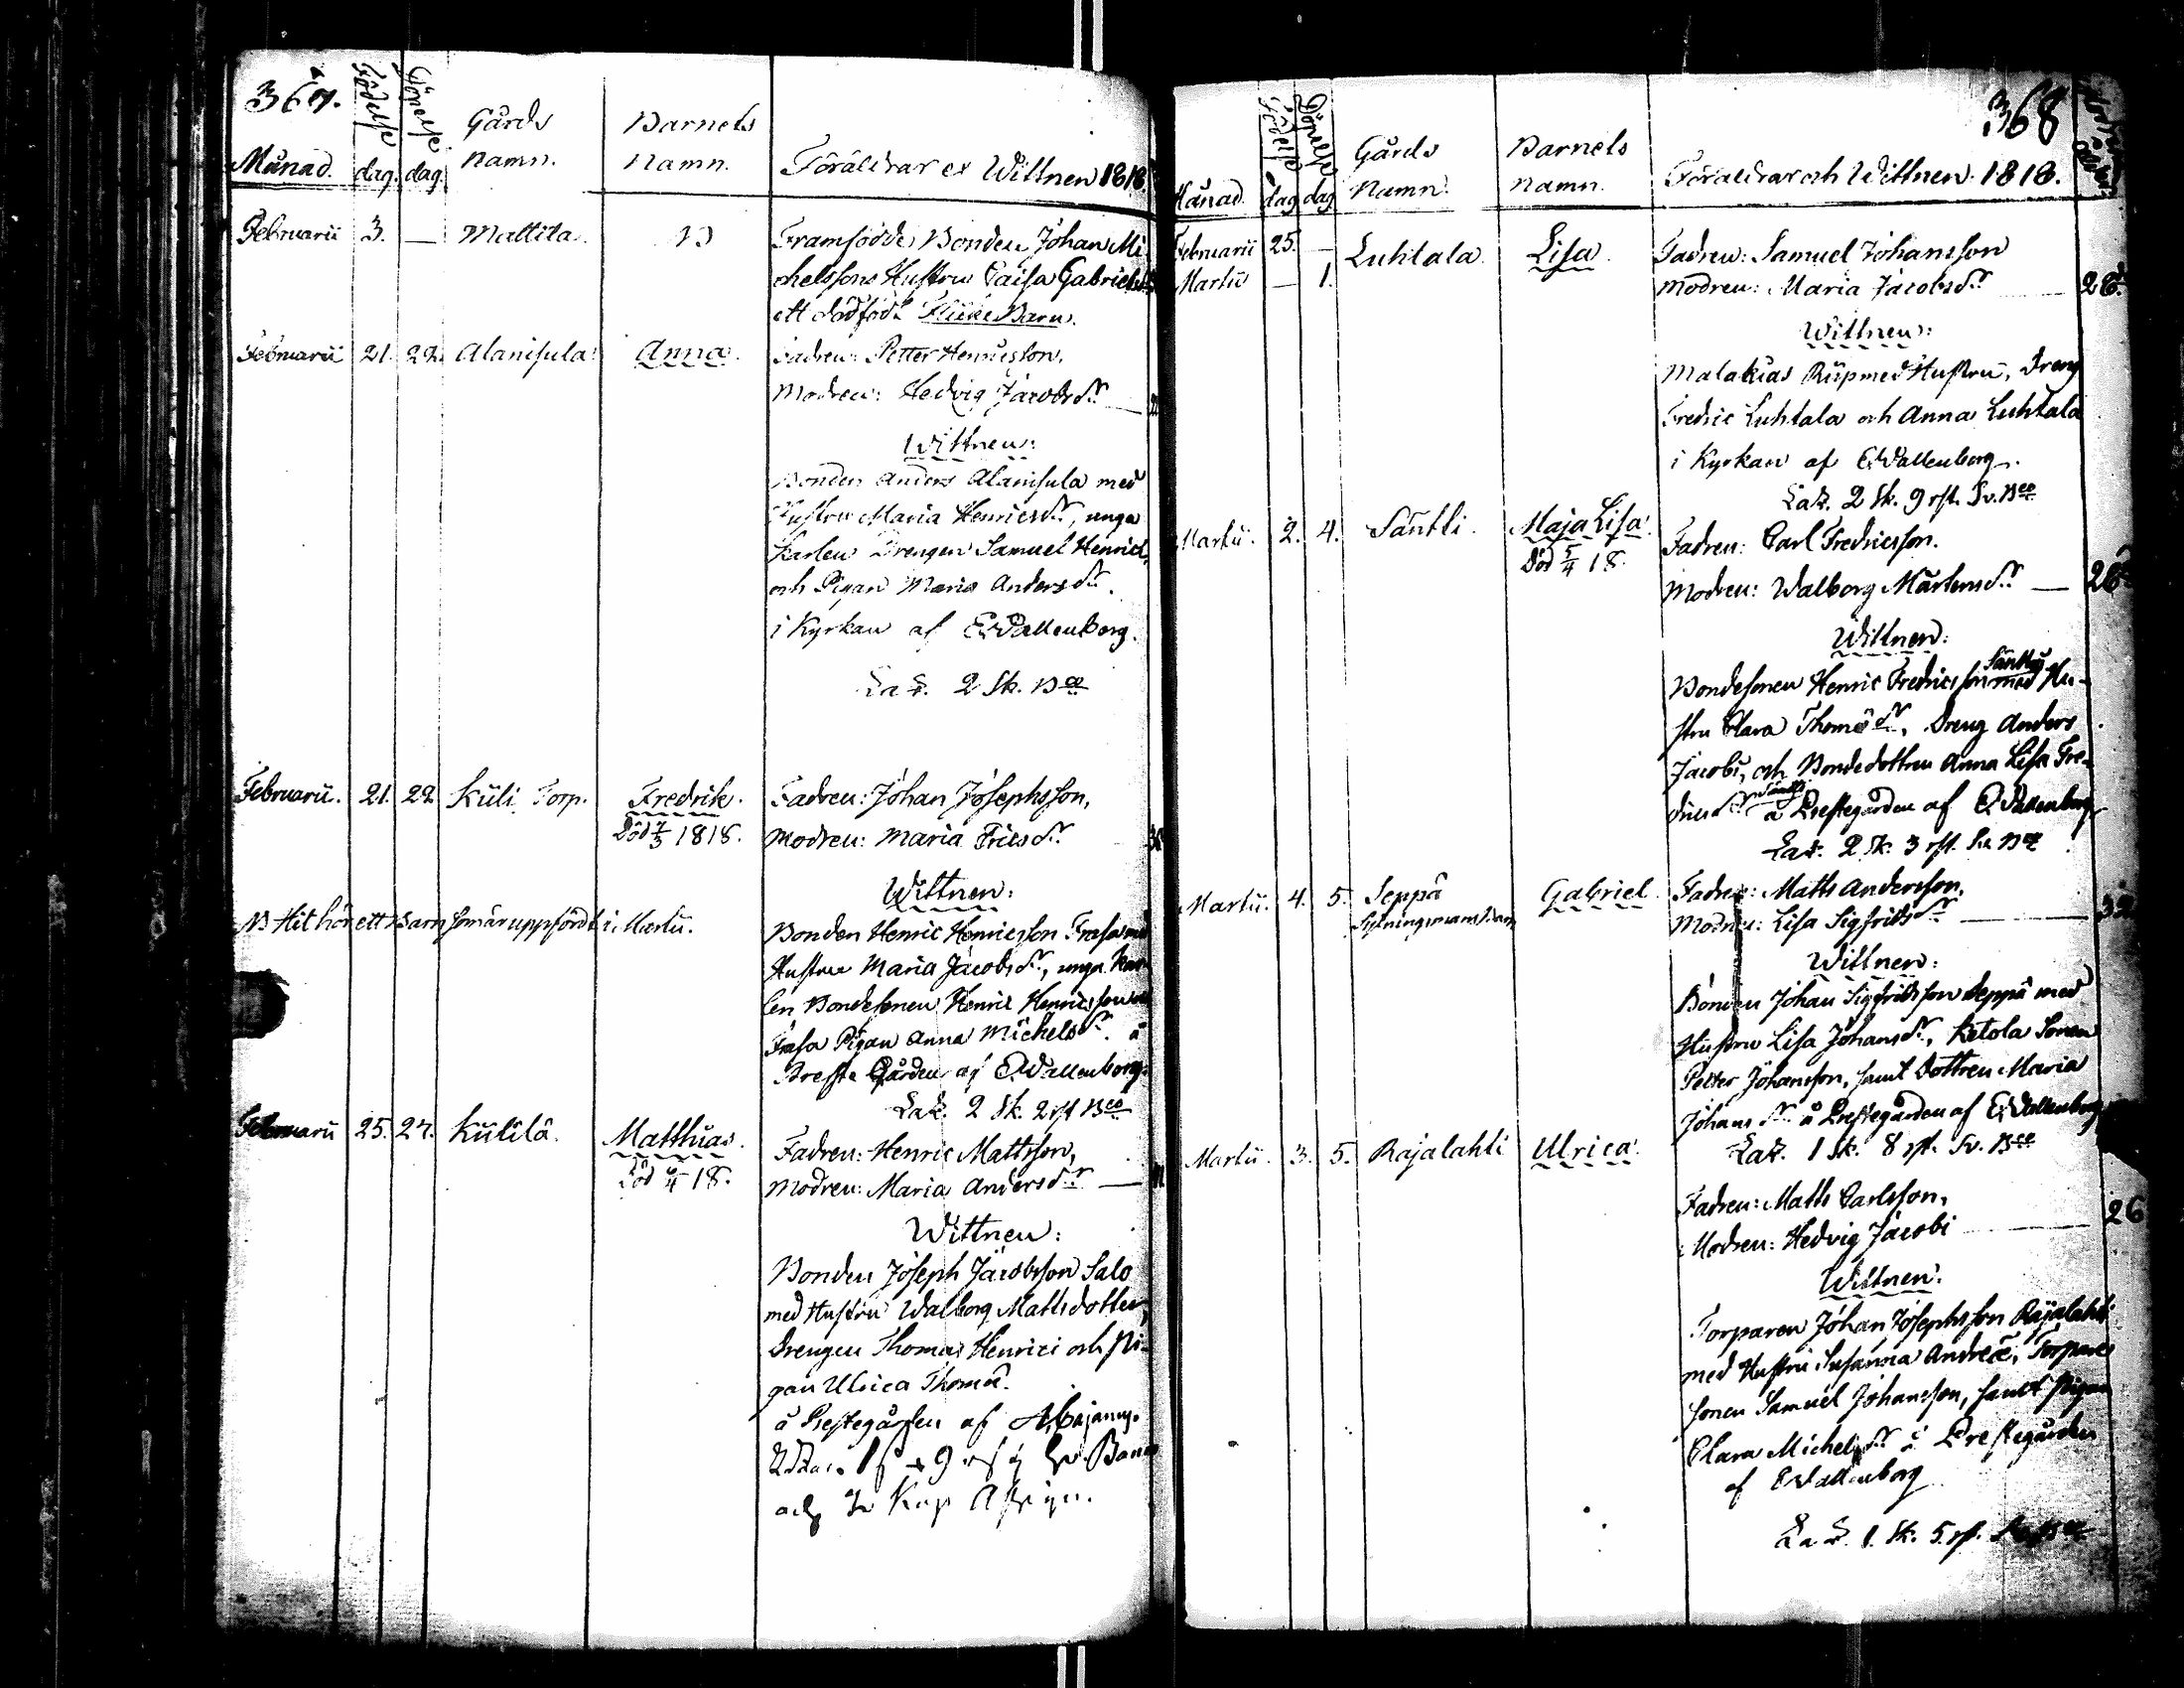 367.
Månad. Födelse dag. Döpelse dag. Gårds Namn. Barnets Namn. Föräldrar et Wittnen 1818
Februarii 3. — Mattila. N Framfödde Bonden Johan Mi
chelssons Hustru Caisa Gabriels
ett dödföd. Flicke Barn.
Februarii 21. 22. Alanisula. Anna. Fadren: Petter Henricsson,
Modren: Hedvig Jacobsdr
Wittnen:
Bonden Anders Alanisula med
Hustru Maria Henricsdr, unga
Karlen Drengen Samuel Henrici
och Pigan Maria Andersdr.
i Kyrkan af E. Wallenberg.
2 Sk. Bco
Februarii. 21. 22 Kiili Torp. Fredrik. Fadren: Johan Josephsson,
Död 7/3 1818. Modren: Maria Ericsdr
Wittnen:
NB Hit hör ett Barn som är uppfördt i Martii. Bonden Henric Henricsson Frasa med
Hustru Maria Jacobsdr, unga Kar
len Bondesonen Henric Henricsson
Frasa Pigan Anna Michelsdr. å
Preste Gården af E. Wallenberg.
2 Sk. 2 rst Bco
Februarii 25. 27. Kiililä. Matthias. Fadren: Henric Mattsson,
Död /4 18. Modren: Maria Andersdr
Wittnen:
Bonden Joseph Jacobsson Salo
med Hustru Walborg Mattsdotter,
Drengen Thomas Henrici och Pi-
gan Ulrica Thomæ.
å Prestegården af
368
Månad. Födelse dag Döpelse dag Gårds Namn. Barnets Namn. Föräldrar och Wittnen. 1818.
Februarii 25. — Luhtala. Lisa. Fadren: Samuel Johansson
Martii — 1. Modren: Maria Jacobsdr
Wittnen:
Malakias Riip med Hustru, Dreng
Fredric Luhtala och Anna Luhtala
i Kyrkan af E. Wallenberg.
2 Sk. 9 rst. Sv. Bco
Martii. 2. 4. Säntti. Maja Lisa. Fadren: Carl Fredricsson.
Död 5/4 18. Modren: Walborg Mårtensdr — 26
Wittnen:
Säntti
Bondesonen Henric Fredricsson med Hu-
stru Clara Thomædr, Dreng Anders
Jacobi, och Bondedottren Anna Lisa Fre-
Säntti
dricsdr å Prestegården af E. Wallenberg
2 Sk. 3 rst. Sv. Bco
Martii. 4. 5. Seppä Gabriel. Fadren: Matts Andersson,
Sytningsmans Barn Modren: Lisa Sigfridsdr
Wittnen:
Bonden Johan Sigfridsson Seppä med
Hustru Lisa Johansdr, Ketola Sonen
Petter Johansson, samt Dottren Maria
Johansdr å Prestegården af E. Wallenberg
1 Sk. 8 rst. Sv. Bco
Martii. 3. 5. Rajalahti Ulrica. Fadren: Matts Carlsson,
Modren: Hedvig Jacobi — 26
Wittnen.
Torparen Johan Josephsson Rajalahti
med Hustru Susanna Andreæ, Torpare
sonen Samuel Johansson, samt Pigan
Clara Michelsdr å Prestegården
af E. Wallenberg
1. Sk. 5. rst.